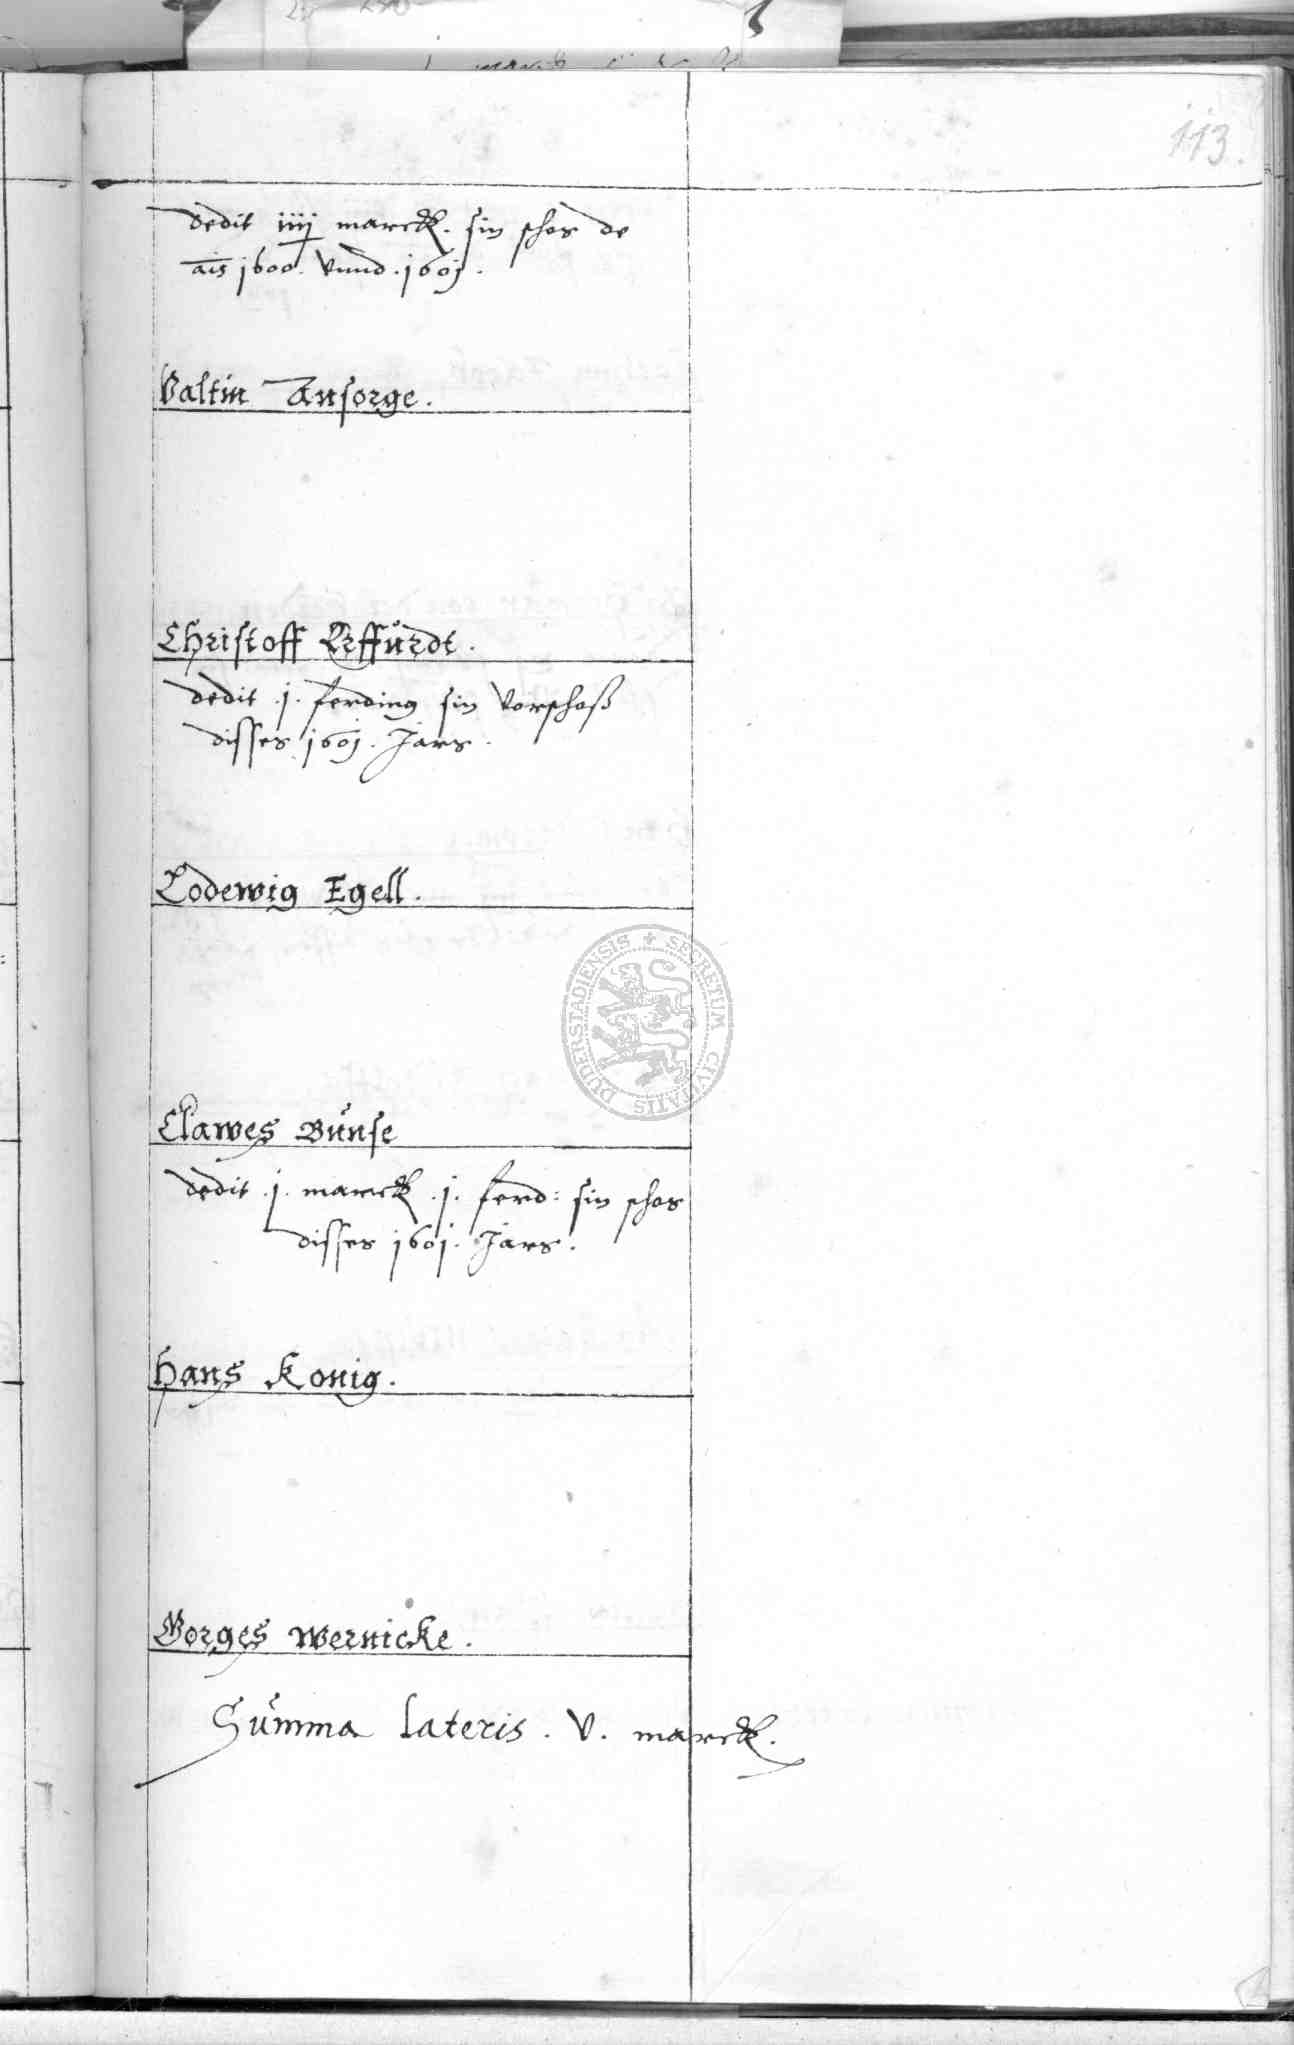 113.
dedit iiij marck. sin schos de
ais 1600. Vnnd. 1601.
Valtin Ansorge.
Christoff Erffurdt.
dedit .j. ferding sin Vorschoß
disses 1601. Jars.
Lodewig Egell.
Clawes Bunse
dedit .j. marck .j. ferd: sin schos
disses 1601. Jars.
Hans Konig.
Borges Wernicke.
Summa lateris. V. marck.
SECRETUM CIVITATIS DUDERSTADIENSIS